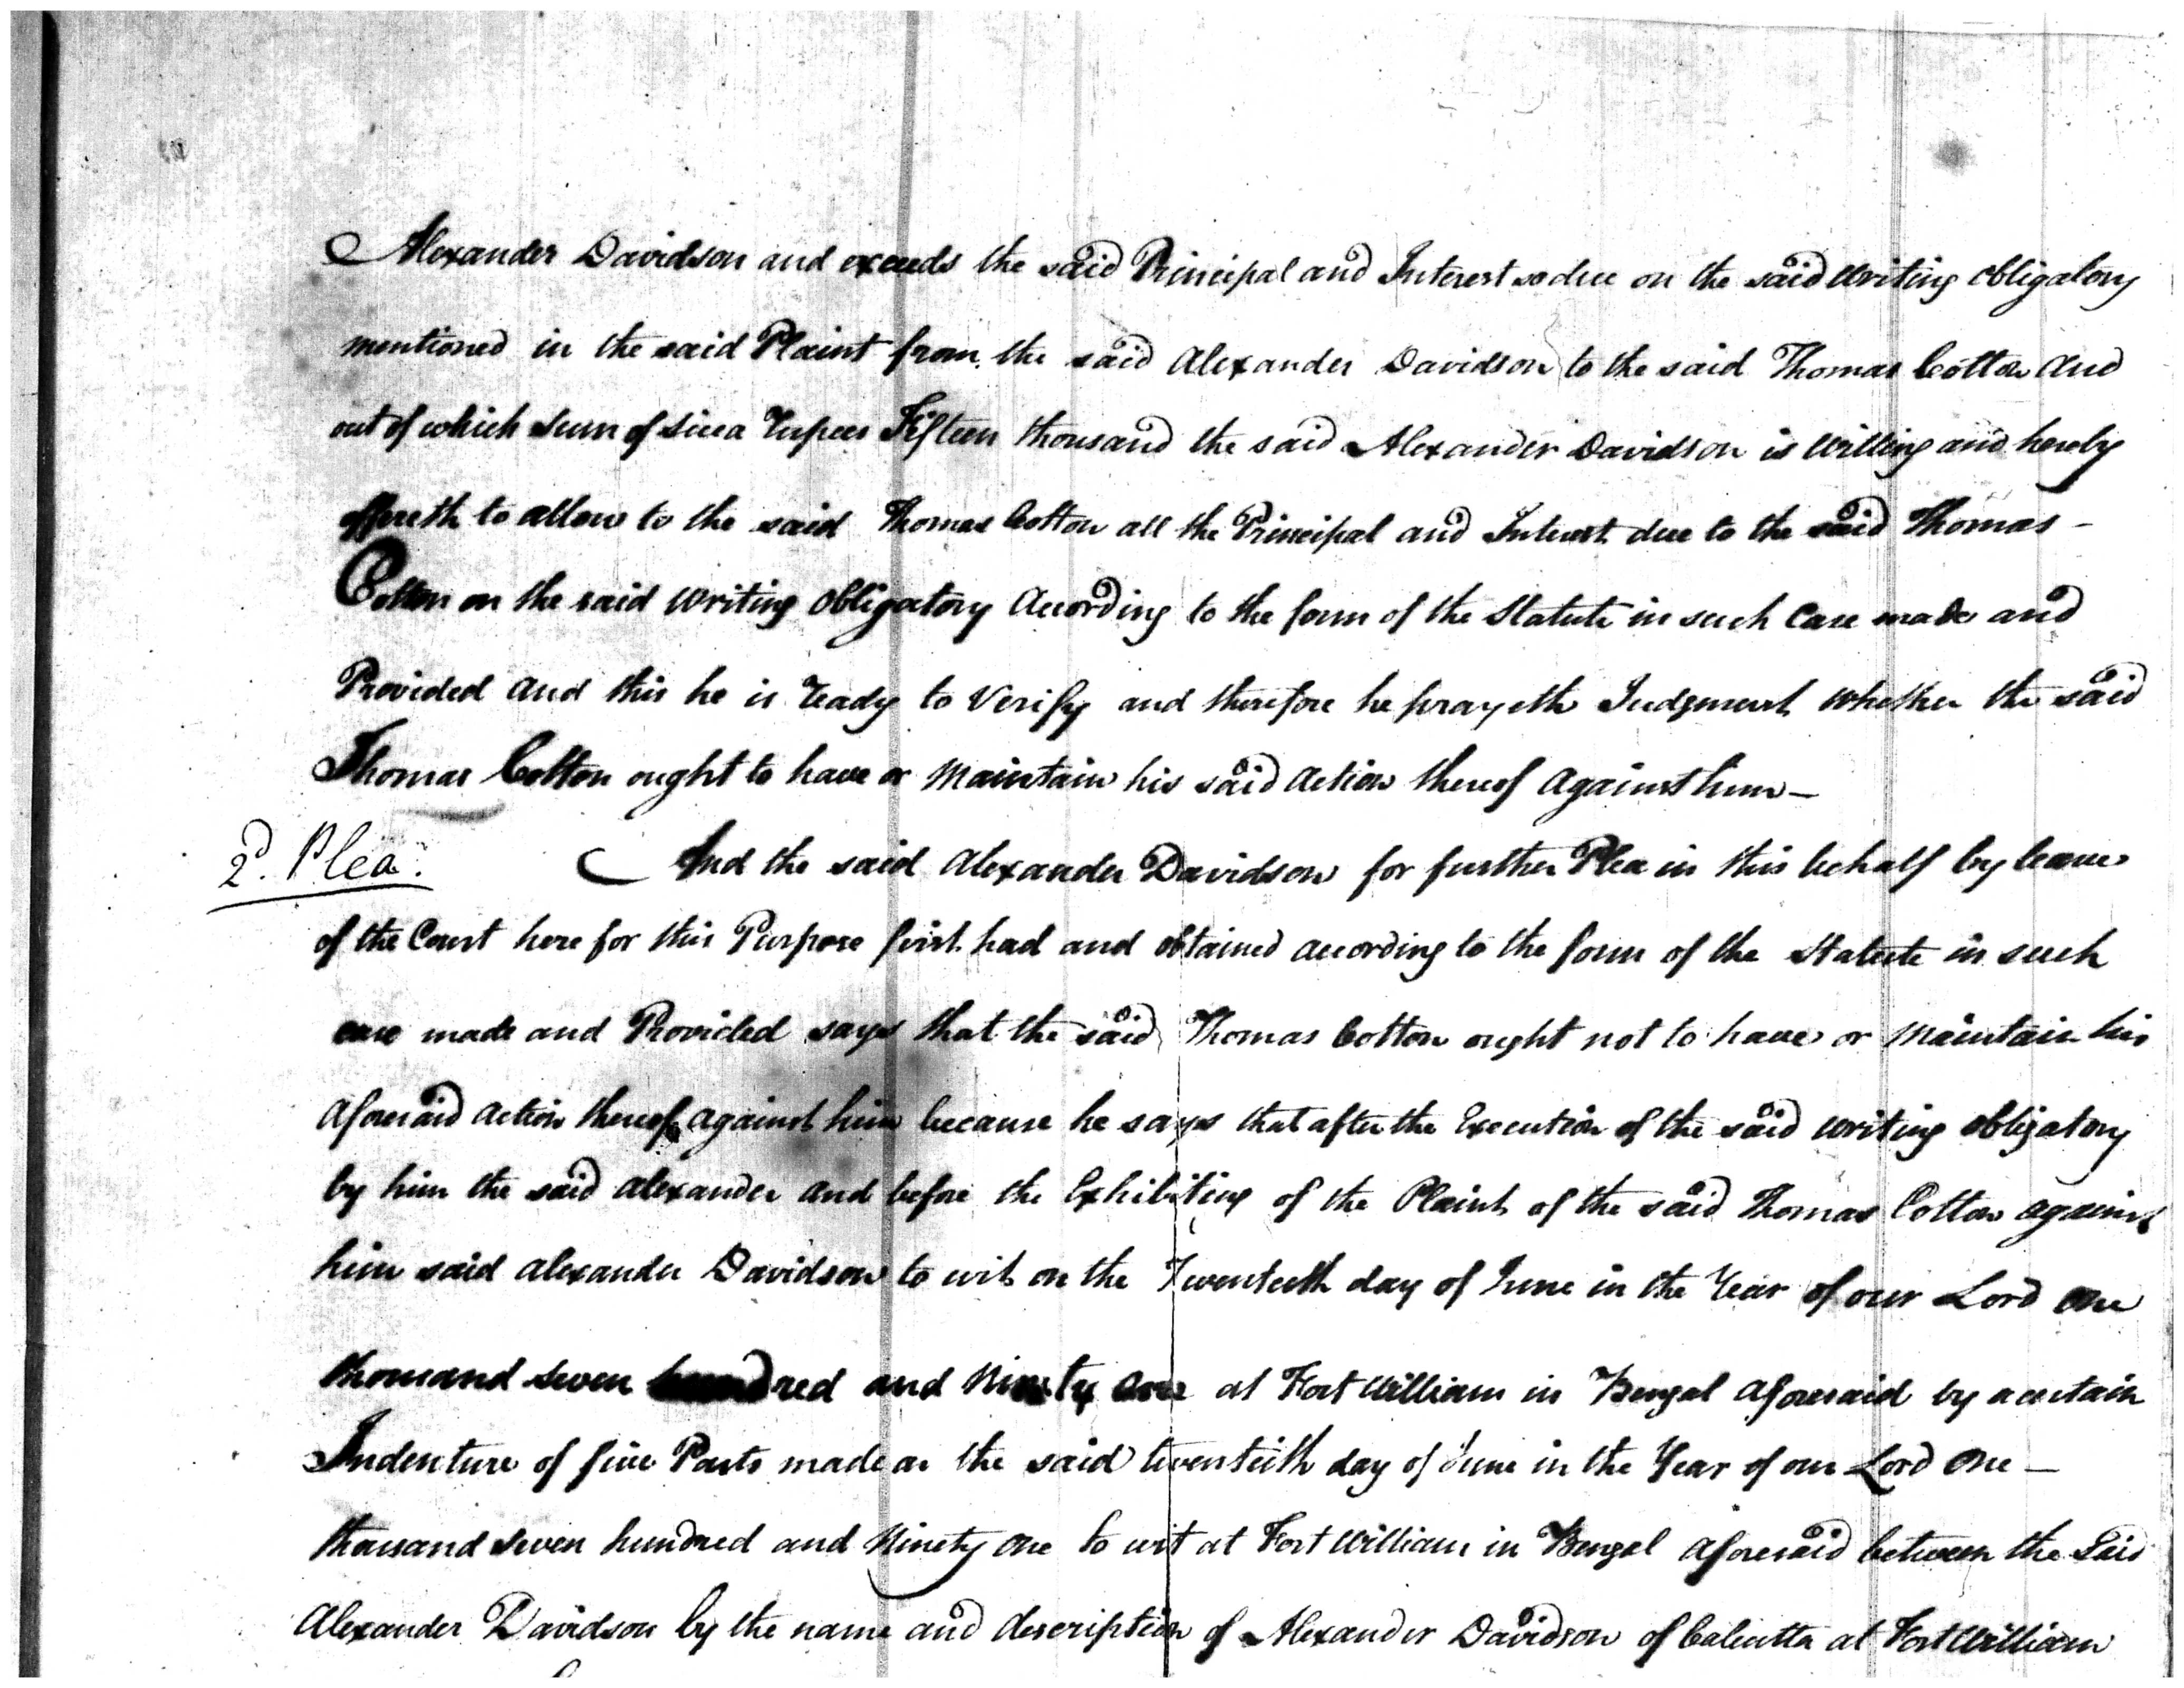 Alexander Davidson and exceeds the said Principal and Interest so due on the said Writing obligatory
mentioned in the said Plaint from the said Alexander Davidson to the said Thomas Cotton and
out of which Sum of Sicca Rupees Fifteen thousand the said Alexander Davidson is Willing and hereby
offereth to allow to the said Thomas Cotton all the Principal and Interest due to the said Thomas -
Cotton on the said Writing obligatory According to the form of the Statute in such Case made and
Provided and this he is ready to Verify and therefore he prayeth Judgment whether the said
Thomas Cotton ought to have or Maintain his said Action thereof Against him —
2d. Plea. And the said Alexander Davidson for further Plea in this behalf by leave
of the Court here for this Purpose first had and obtained according to the form of the Statute in such
case made and Provided says that the said Thomas Cotton ought not to have or Maintain his
aforesaid Action thereof against him because he says that after the Execution of the said writing obligatory
by him the said Alexander and before the Exhibiting of the Plaint of the said Thomas Cotton against
him said Alexander Davidson to wit on the Twentieth day of June in the Year of our Lord One
thousand seven hundred and Ninety One at Fort William in Bengal aforesaid by a certain
Indenture of five Parts made on the said twentieth day of June in the Year of our Lord One —
thousand seven hundred and Ninety One to wit at Fort William in Bengal aforesaid between the Said
Alexander Davidson by the name and description of Alexander Davidson of Calcutta at Fort William